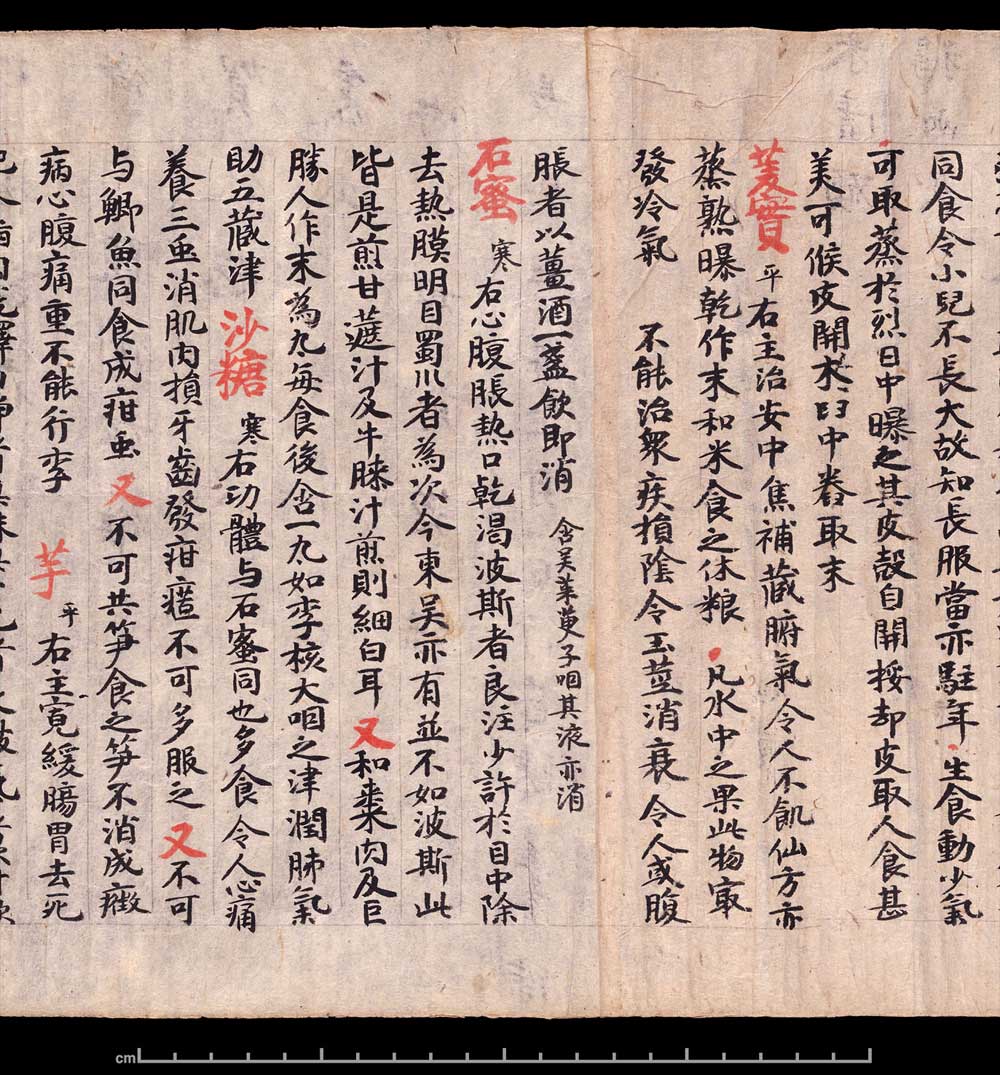 同食令小兒不長大故知長服當亦駐年生食動少氣
可取蒸於烈日中曝之其皮殼自開挼却皮取人食甚
美可候皮開木臼中舂取末
菱實 平 右主治安中焦補藏腑氣令人不飢仙方亦
蒸熟曝乾作末和米食之休粮 凡水中之果此物㝡
發冷氣 不能治衆疾損陰令玉莖消衰 令人或腹
脹者以薑酒一盞飲即消 含吴茱萸子咽其液亦消
石蜜 寒 右心腹脹熱口乾渴波斯者良注少許於目中除
去熱膜明目蜀川者為次今東吴亦有並不如波斯此
皆是煎甘蔗汁及牛膝汁煎則細白耳 又和棗肉及巨
勝人作末為丸每食後含一丸如李核大咽之津潤肺氣
助五藏津 沙糖 寒 右功體与石蜜同也多食令人心痛
養三虫消肌肉損牙齒發疳不可多服之 又不可
与鯽魚同食成疳虫 又不可共笋食之笋不消成癥
病心腹痛重不能行李 芋 平 右主寬緩腸胃去死
cm